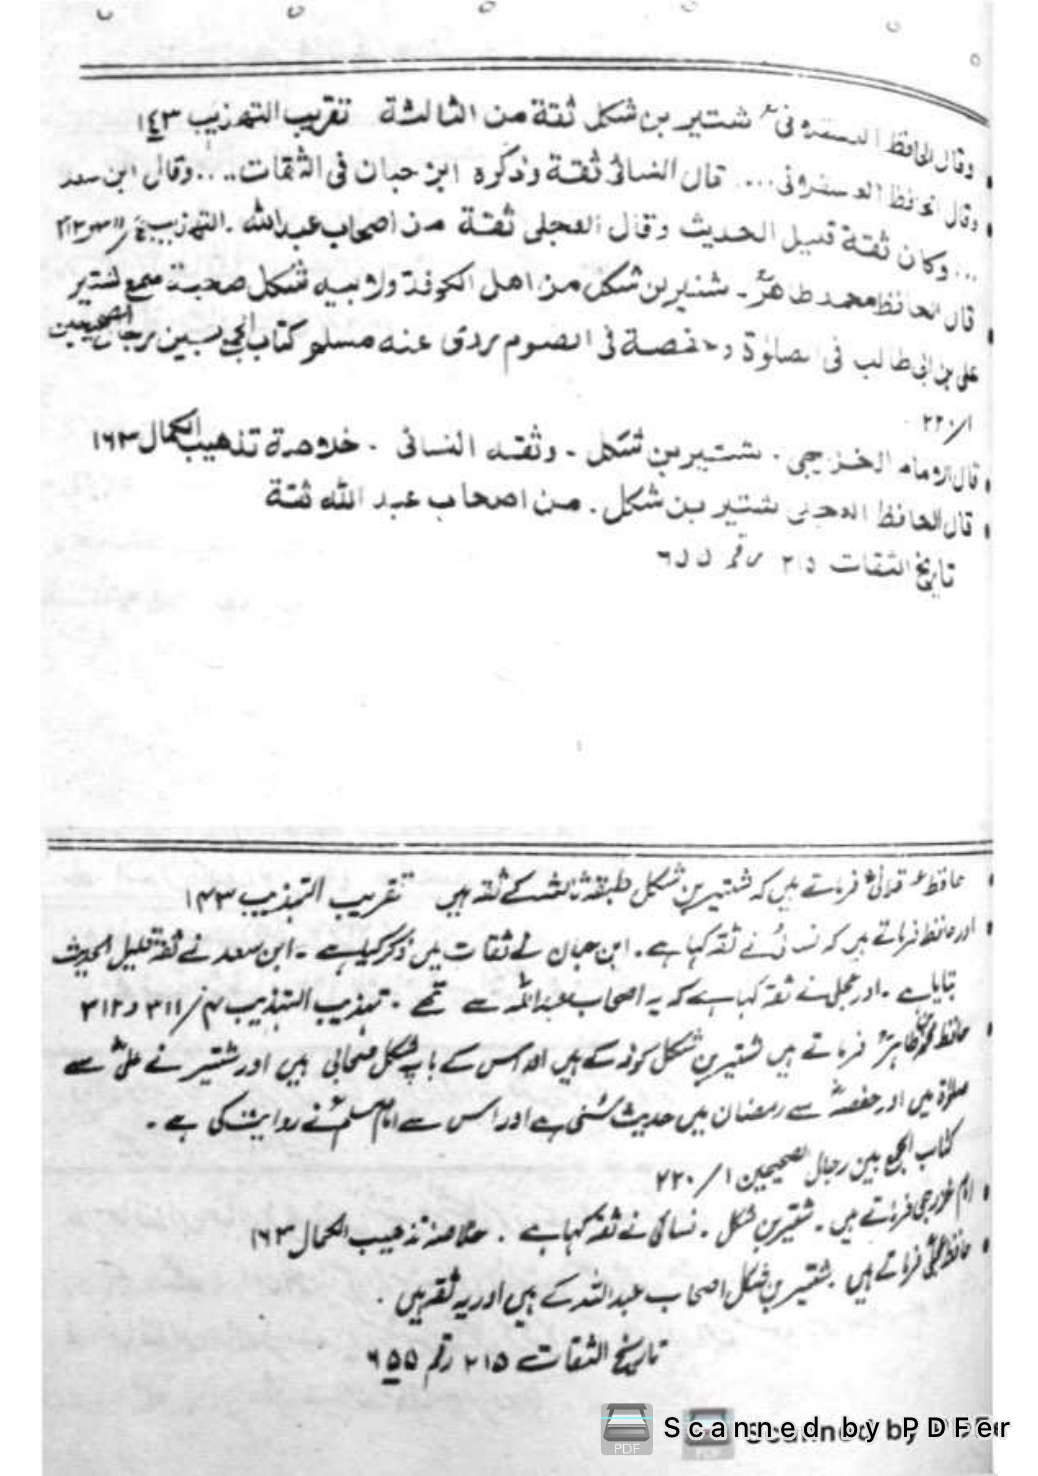 وقال الحافظ العسقلانیؒ شتیر بن شکل ثقة من الثالثة تقریب التهذیب ۱۴۳
وقال الحافظ العسقلانی .... قال النسائی ثقة وذکره ابن حبان فی الثقات .... وقال ابن سعد
... وکان ثقة قلیل الحدیث وقال العجلی ثقة من اصحاب عبدالله . التهذیب
قال الحافظ محمد طاهرؒ ۔ شتیر بن شکل من اهل الکوفة ولابیه شکل صحبة سمع لشتیر
علی بن ابی طالب فی الصلوٰة وحفصة فی الصوم روی عنه مسلم کتاب الجمع بین رجال الصحیحین
۱/۲۲۰
قال الامام الخزرجی . شتیر بن شکل . وثقه النسائی . خلاصة تذهیب الکمال ۱۶۳
قال الحافظ العجلی شتیر بن شکل . من اصحاب عبد الله ثقة
تاریخ الثقات ۲۱۵ رقم ۶۵۵
حافظ عسقلانیؒ فرماتے ہیں کہ شتیر بن شکل طبقہ ثالثہ کے ثقہ ہیں تقریب التہذیب ۱۴۳
اور حافظ فرماتے ہیں کہ نسائیؒ نے ثقہ کہا ہے ۔ ابن حبان نے ثقات میں ذکر کیا ہے ۔ ابن سعد نے ثقہ قلیل الحدیث
بتایا ہے ۔ اور عجلی نے ثقہ کہا ہے کہ یہ اصحاب عبداللہ سے تھے ۔ تہذیب التہذیب ۴/۳۱۱ و ۳۱۲
حافظ محمد طاہرؒ فرماتے ہیں شتیر بن شکل کوفہ کے ہیں اور اس کے باپ شکل صحابی ہیں اور شتیر نے علیؓ سے
صلاۃ میں اور حفصہؓ سے رمضان میں حدیث سُنی ہے اور اس سے امام مسلمؒ نے روایت کی ہے ۔
کتاب الجمع بین رجال الصحیحین ۱/۲۲۰
امام خزرجی فرماتے ہیں ۔ شتیر بن شکل ۔ نسائی نے ثقہ کہا ہے . خلاصہ تذہیب الکمال ۱۶۳
حافظ عجلیؒ فرماتے ہیں شتیر بن شکل اصحاب عبداللہ کے ہیں اور یہ ثقہ ہیں .
تاریخ الثقات ۲۱۵ رقم ۶۵۵
PDF
Scanned by PDFer
Scanned by PDFer